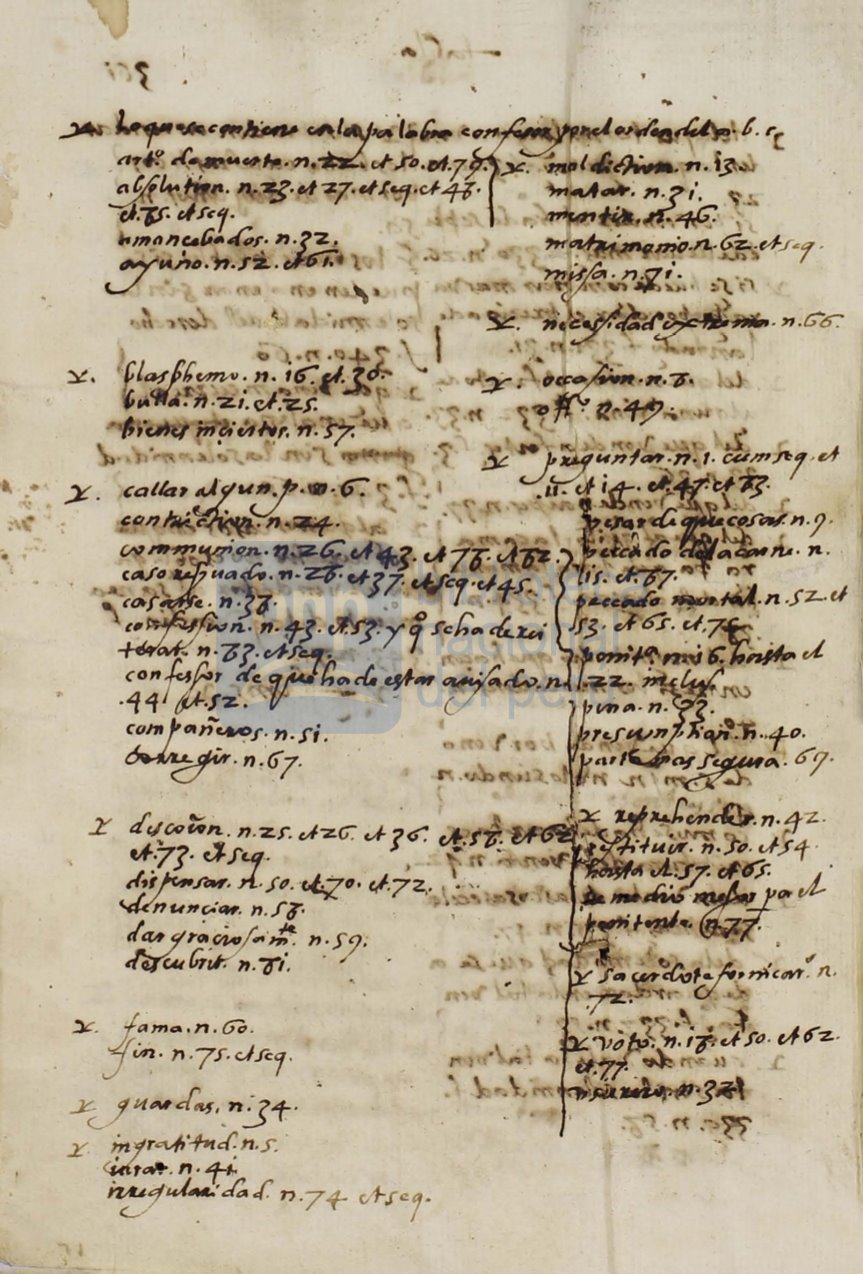 lo que se contiene en la palabra confesor por el orden del a. b. c.
art.º de muerte. n. 22. et 50. et. 79.
absolution. n. 23. et 27. et seq. et 48.
et. 85. et seq.
amancebados. n. 32.
ayuno. n. 52. et 61.
blasphemo. n. 16. et. 38.
bulla. n. 21. et. 25.
bienes inciertos. n. 57.
callar algun. p. n. 6.
contriction. n. 24.
communion. n. 26. et 43. et 78. et 82.
caso reseruado. n. 28. et 37. et seq. et 45.
casarse. n. 38.
confession. n. 43. et. 53. y q̃ se ha de rei
terar. n. 83. et seq.
confessor de que ha de estar auisado. n.
.44. et. 52.
compañeros. n. 51.
corregir. n. 67.
descoiõn. n. 25. et 26. et 36. et. 58. et 62
et. 73. et seq.
dispensar. n. 50. et. 70. et. 72.
denunciar. n. 58.
dar graciosamte. n. 59.
descubrir. n. 81.
fama. n. 60.
fin. n. 75. et seq.
guardas. n. 34.
ingratitud. n. 5.
iurar. n. 41
irregularidad. n. 74 et seq.
maldiction. n. 13.
matar. n. 31.
mentir. n. 46.
matrimonio. n. 62. et seq.
missa. n. 71.
necessidad extrema. n. 66.
occasion. n. 8.
offº. n. 49.
preguntar. n. 1. cum seq. et
11. et 14. et. 47. et 83.
pesar de que cosas. n. 9.
peccado de la carne. n.
lis. et. 67.
peccado mortal. n. 52. et
53. et 65. et. 76
penitª. n. 16. hasta el
.22. inclus.
pena. n. 33.
presumption. n. 40.
parte mas segura. 69.
reprehender. n. 42.
restituir. n. 50. et 54
hasta el. 57. et 65.
remedio mejor pa el
penitente. n. 77.
sacerdote fornicarº. n.
72.
voto. n. 18. et 50. et 62.
et. 77.
usurero. n. 32